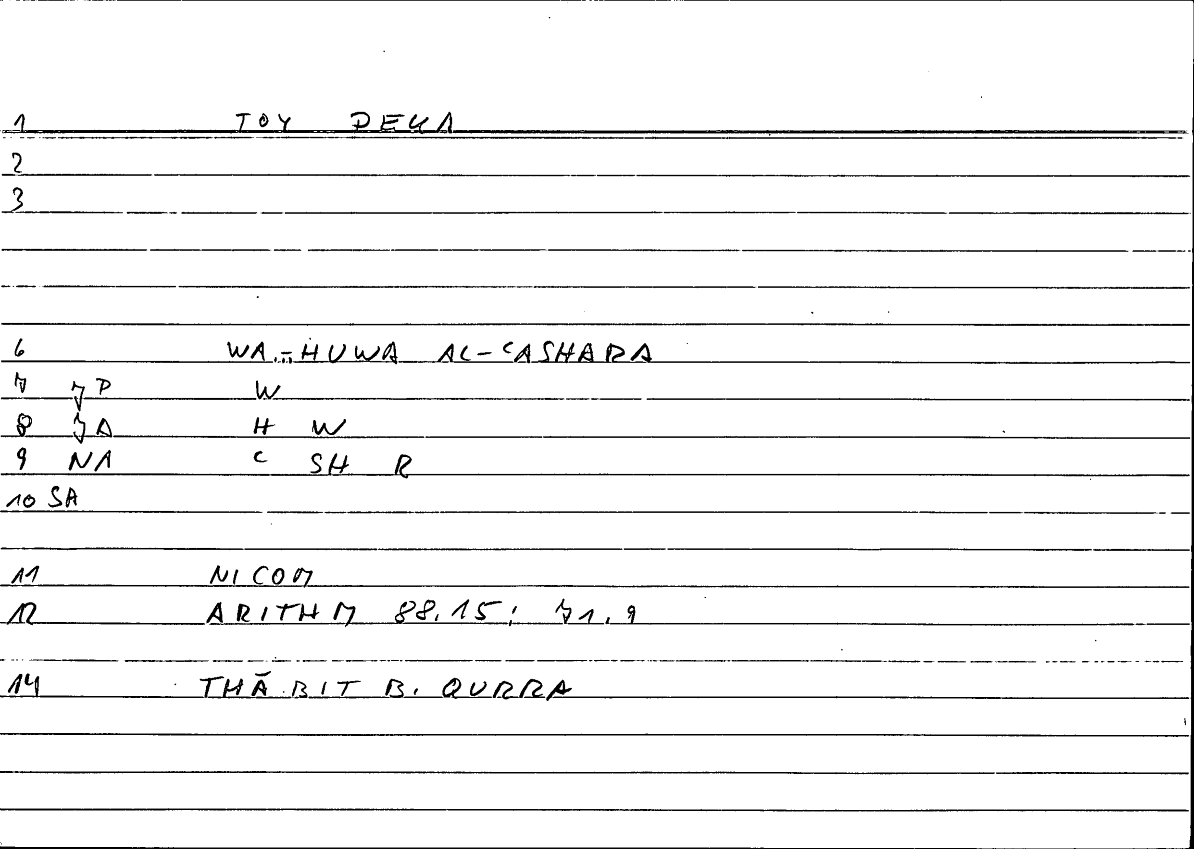 1 TOY DEKA
2
3
6 WA-HUWA AL-CASHARA
7 JP W
8 JA H W
9 NA C SH R
10 SA
11 NICOM
12 ARITHM 88.15; 71.9
14 THĀBIT B. QURRA